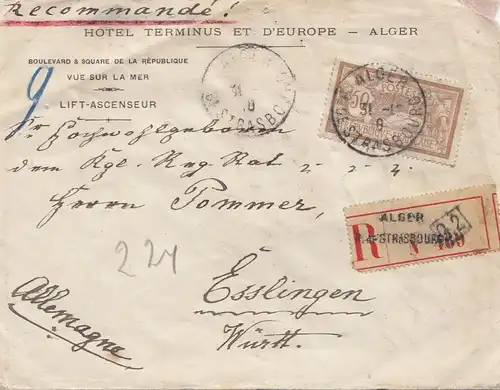 Recommandé!
HOTEL TERMINUS ET D'EUROPE — ALGER
BOULEVARD & SQUARE DE LA RÉPUBLIQUE
VUE SUR LA MER
LIFT-ASCENSEUR
9
ALGER
STRASBOURG
50
POSTES
ALGER
R. DE STRASBOURG
Sr. Hochwohlgeboren
dem Kgl. Reg. Rat
Herrn Pommer,
ALGER
R. de STRASBOURG
R
224
Esslingen
Württ.
Allemagne